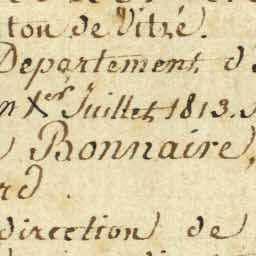 ton de Vitré.
Departement d
Xer Juillet 1813.
Bonnaire,
rd
direction de